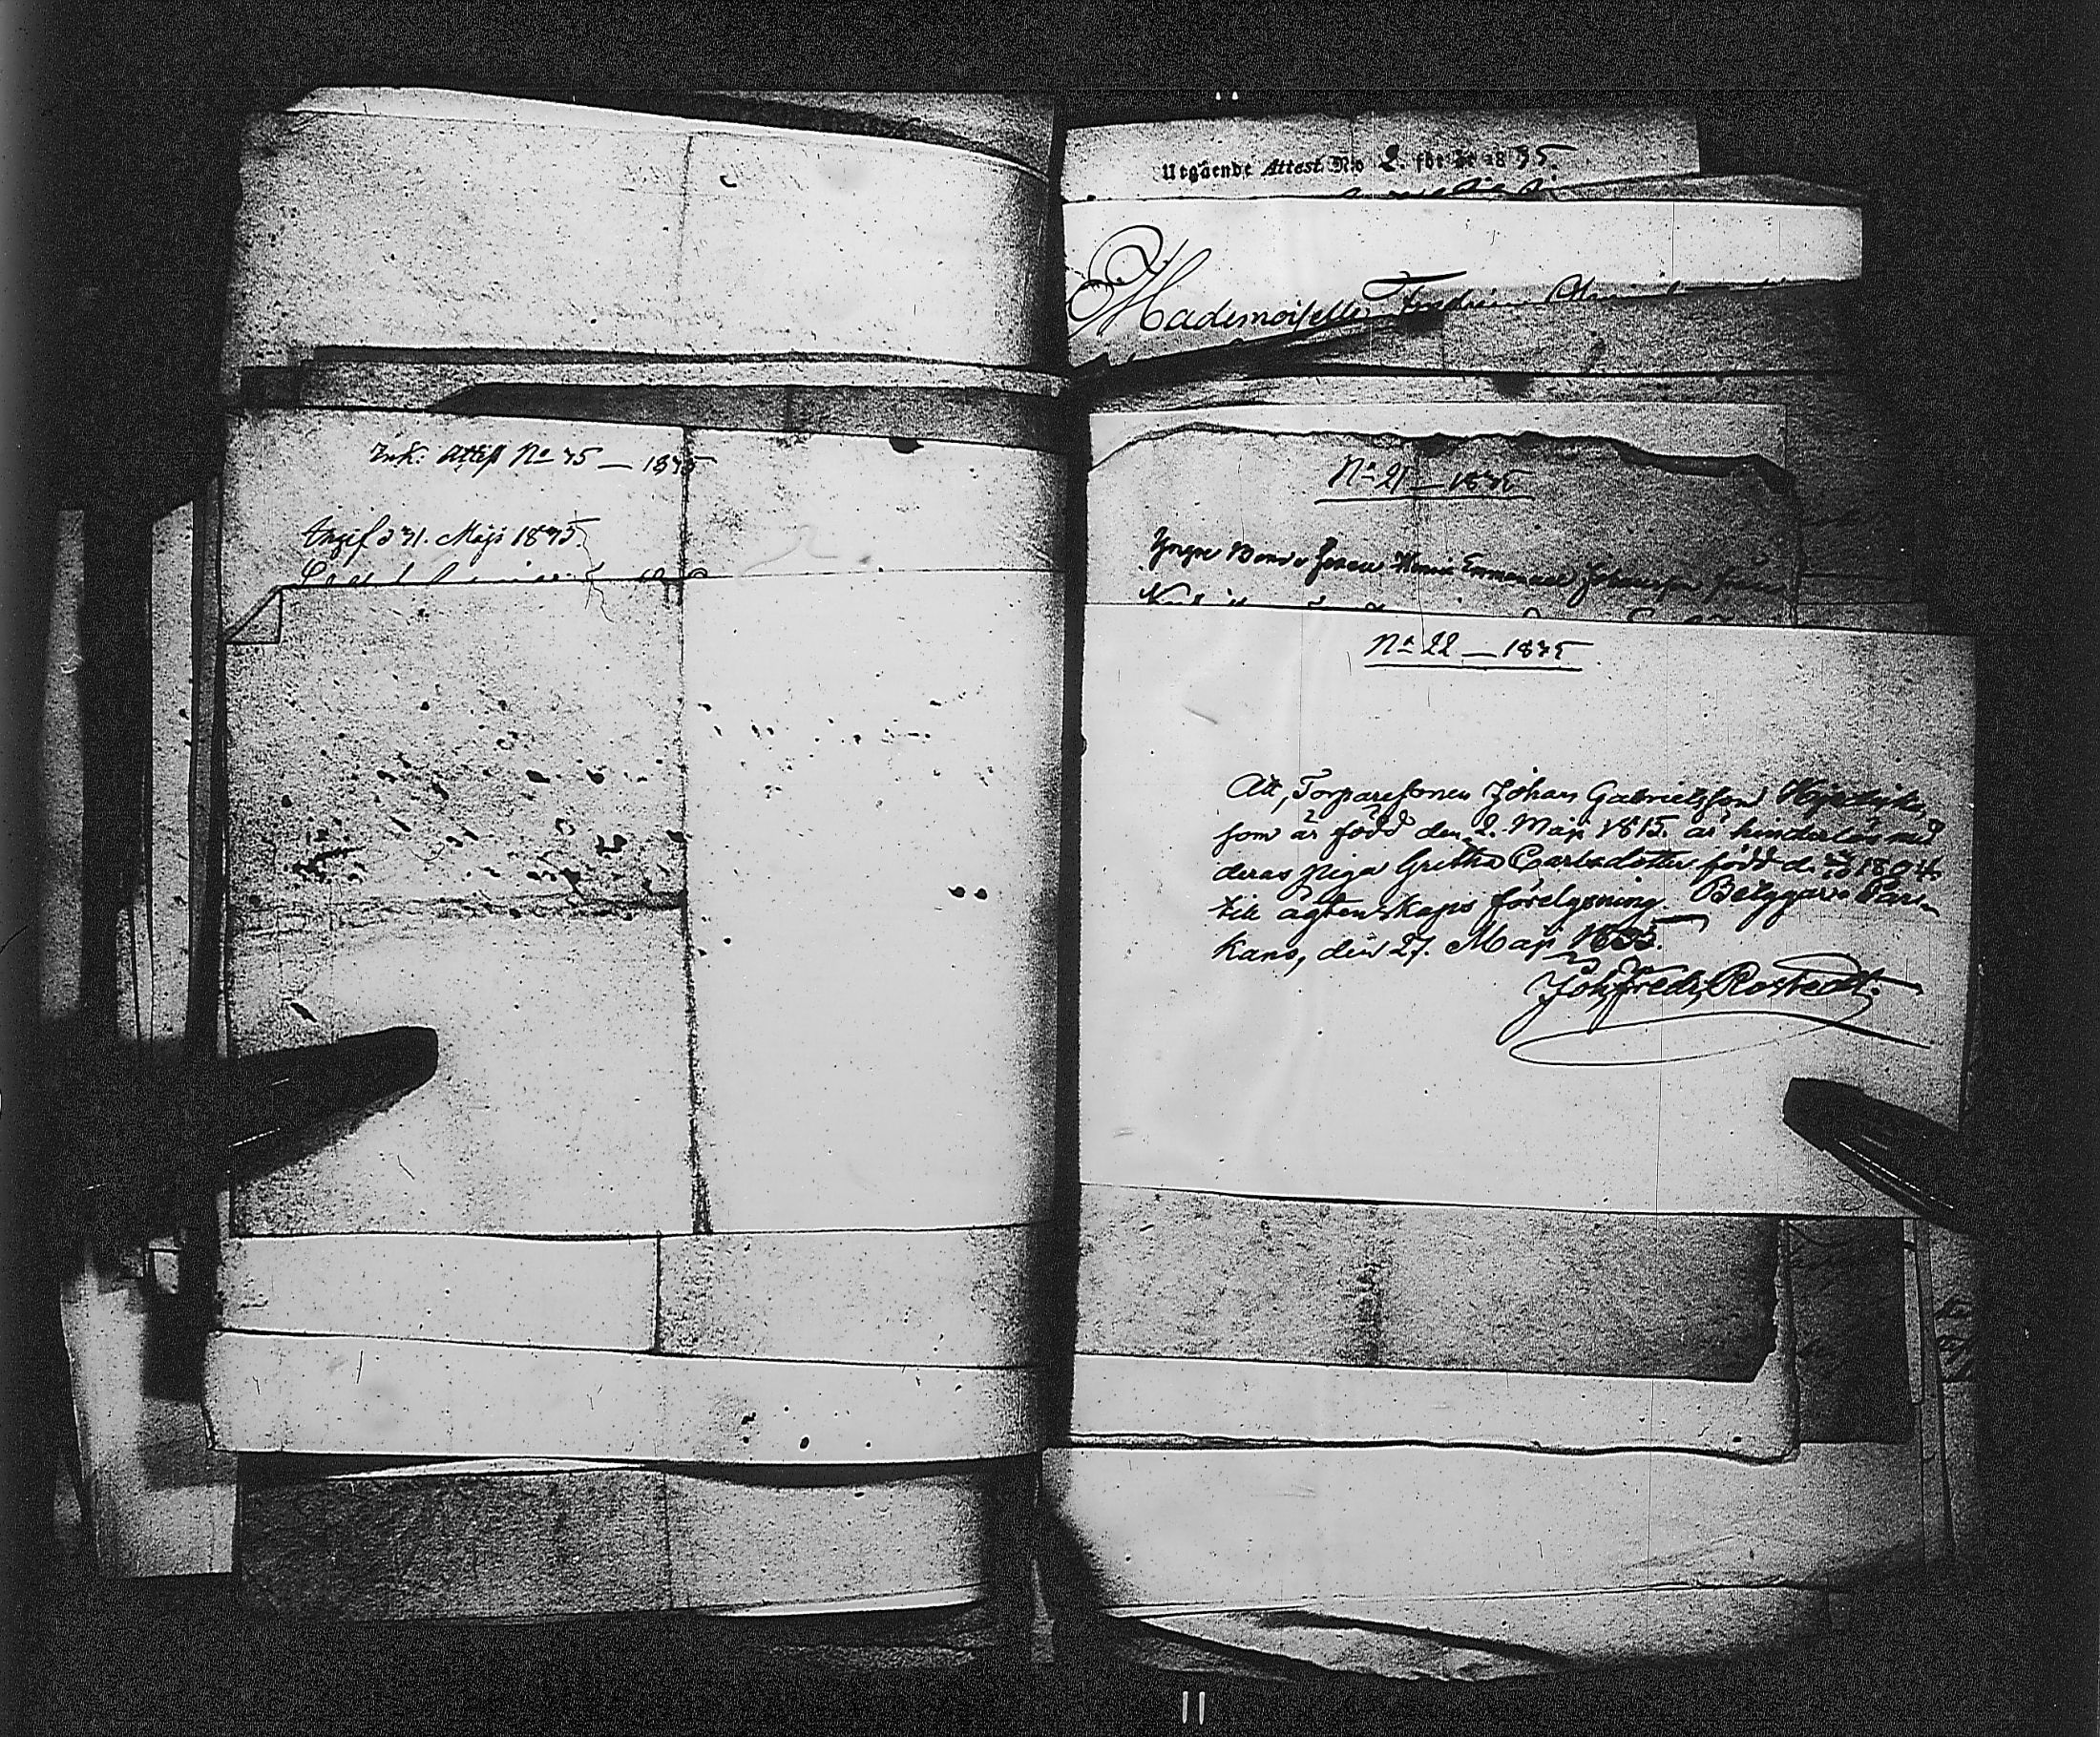 Ink: Attest No 75 — 1835
Angif d 31. Maji 1835.
Utgående Attest No 2. för år 1835.
Mademoiselle
No 21 — 1835
Yngre Bonde Sonen Emmanuel Johansson från
No 22 — 1835
Att, Torparesonen Johan Gabrielsson
som är född den 2. Maji 1815. är hinderlös med
deras piga Gretha Carlsdotter född d. 1804
till ägtenskaps förelysning. Betygar Par-
kano, den 27. Maji 1835.
Joh. Fredr. Rostedt.